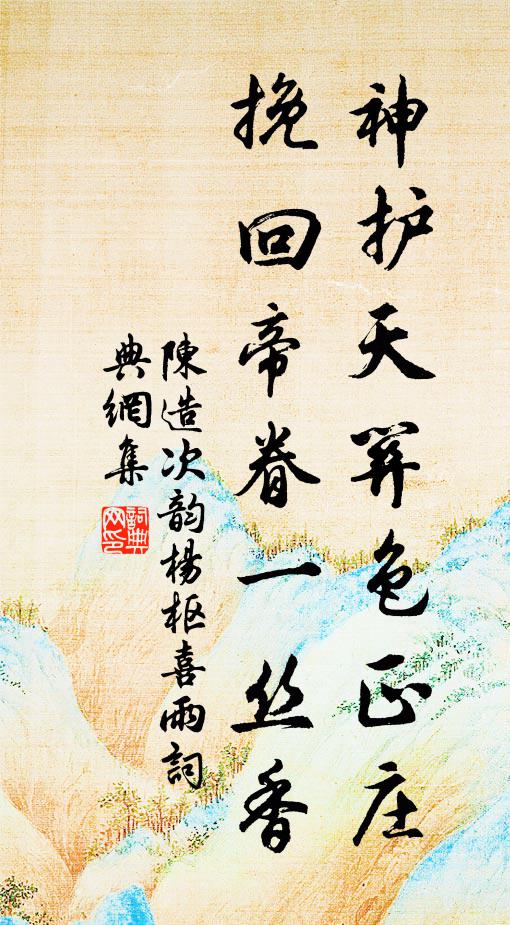 神护天笄色正庄
挽回帝眷一丝香
陳造次韵楊枢喜雨詞
典網集
詞典网印